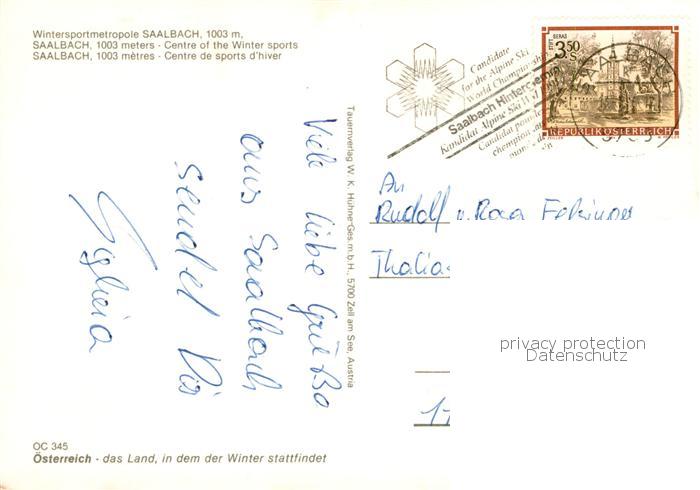 Wintersportmetropole SAALBACH, 1003 m,
SAALBACH, 1003 meters - Centre of the Winter sports
SAALBACH, 1003 mètres - Centre de sports d'hiver
Candidate
for the Alpine Ski
World Championship
Saalbach Hinterglemm
Kandidat Alpine Ski
Candidat pour
STIFT GERAS
3.50
S
REPUBLIK ÖSTERREICH
Tauernverlag W. K. Hühne Ges.m.b.H., 5700 Zell am See, Austria
Viele liebe Grüße
aus Saalbach
sendet
An
Rudolf u. Rosa
Thalia
privacy protection
Datenschutz
OC 345
Österreich - das Land, in dem der Winter stattfindet